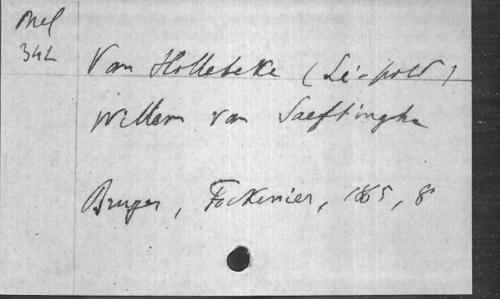 Mel
342
Van Hollebeke (Léopold)
Willem van Saeftinghe
Bruges, Fockenier, 1865, 8°